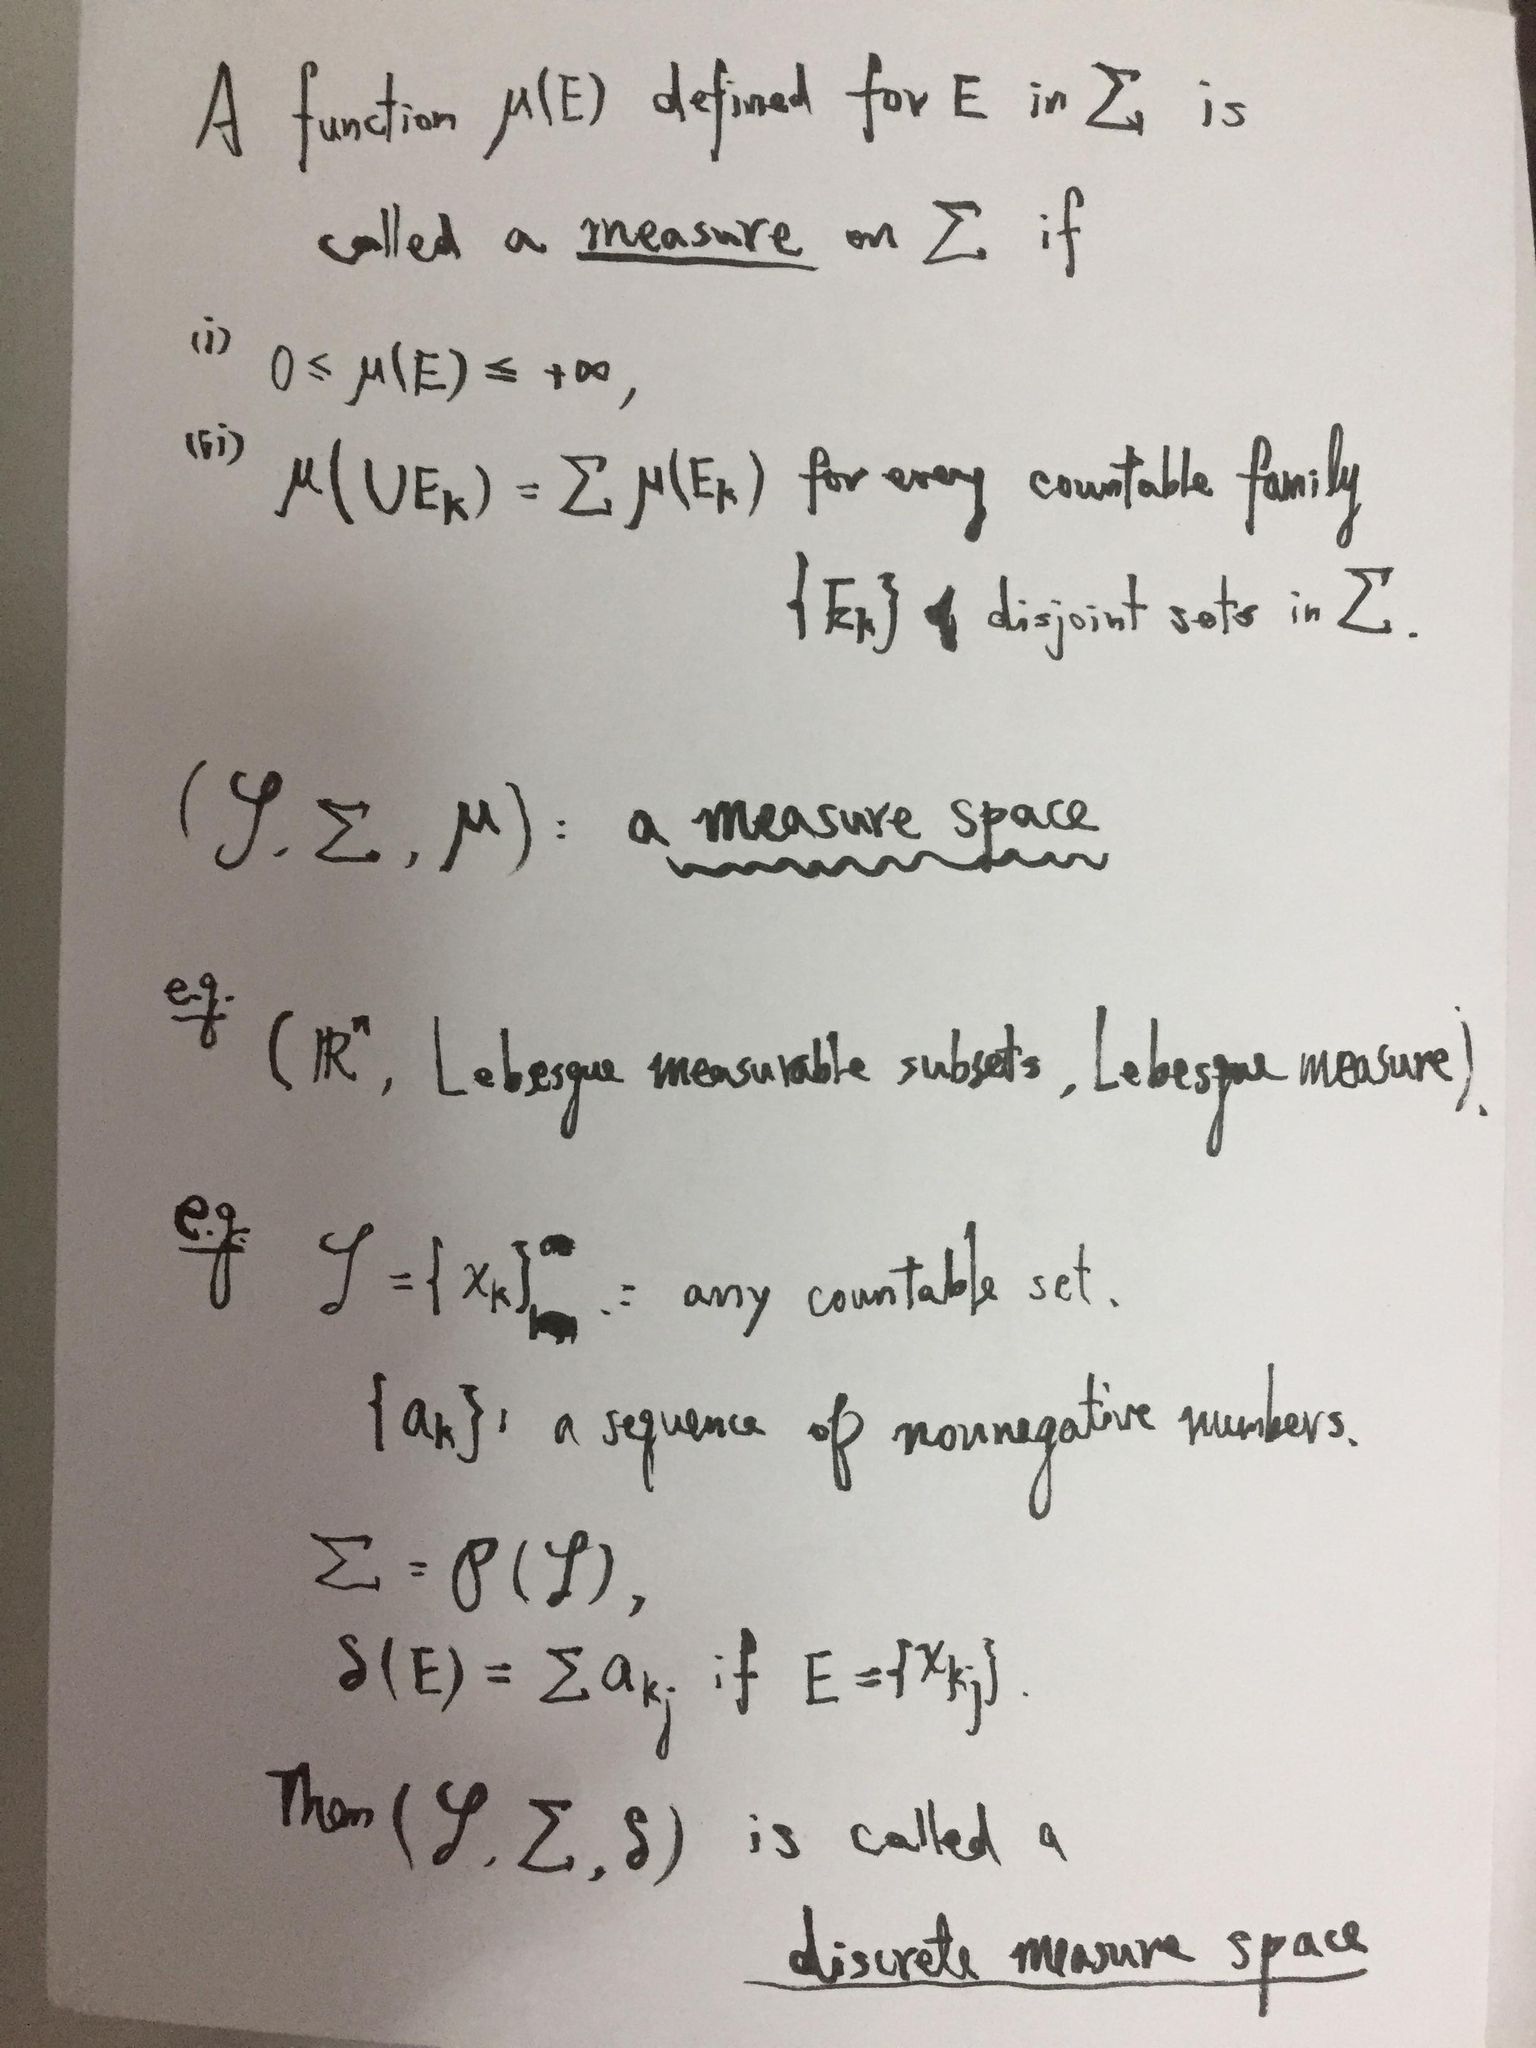 A function μ(E) defined for E in Σ is
called a measure on Σ if
(i) 0 ≤ μ(E) ≤ +∞,
(ii) μ(∪E_k) = Σ μ(E_k) for every countable family
{E_k} of disjoint sets in Σ.
(𝒮, Σ, μ): a measure space
e.g. (ℝⁿ, Lebesgue measurable subsets, Lebesgue measure).
e.g. 𝒮 = {x_k} := any countable set.
{a_k}: a sequence of nonnegative numbers.
Σ = 𝒫(𝒮),
δ(E) = Σ a_{k_j} if E = {x_{k_j}}.
Then (𝒮, Σ, δ) is called a
discrete measure space